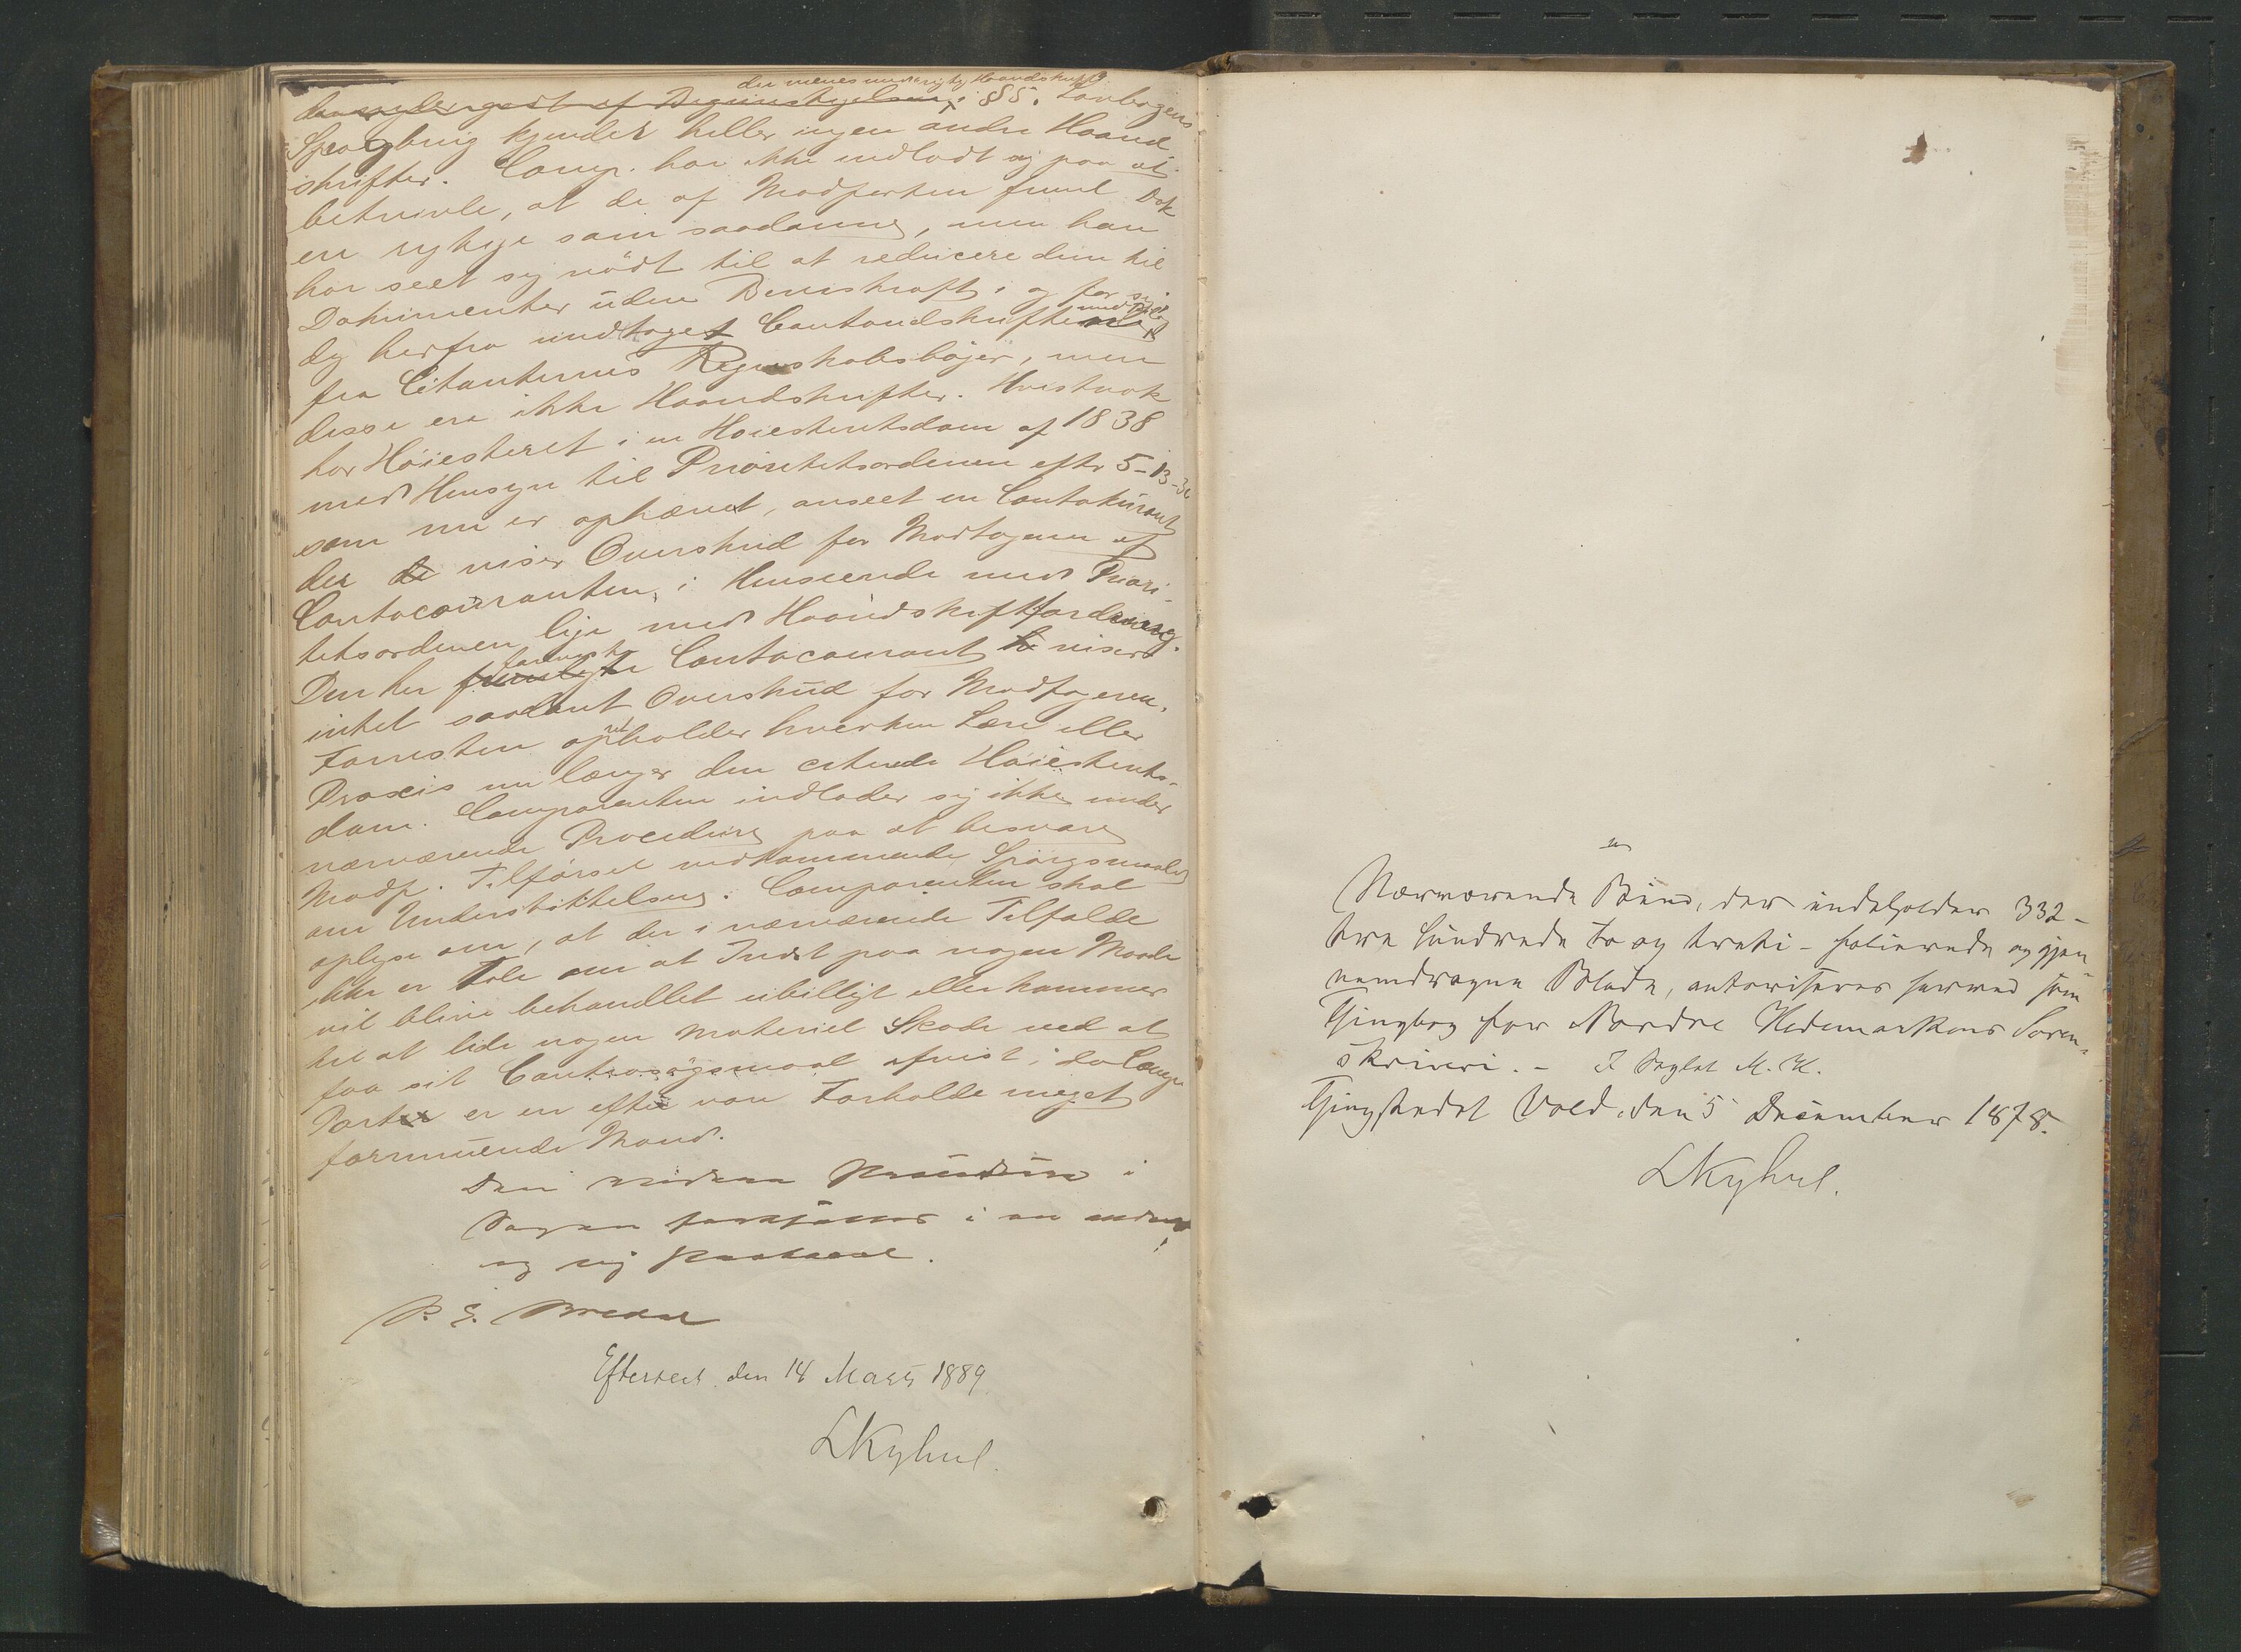 der menes underskr. Haandskrift
af Begunstigelsen, i §§ 5. Lovbogens
Sprogbrug kjender heller ingen andre Haand
skrifter. Comp. har ikke indladt sig paa at
betvivle, at de af Modparten freml. Dok
ere rigtige som saadanne, men han
har seet sig nödt til at reducere dem til
Dokumenter uden Beviskraft, og for
dig herfra undtaget Contoudskrifterne
fra Citanternes Regnskabsböger, men
disse ere ikke Haandskrifter. Hvistnok
har Höiesteret i en Höiesteretsdom af 1838
med Hensyn til Prioritetsordenen efter 5-13-36
som nu er ophævet, anseet en Contokurant
der viser Overskud for Modtageren af
Contocouranten, i Henseende med Priori-
tetsordenen lige med Haandskriftfordring.
Den her Contocourant viser
intet saadant Overskud for Modtageren.
Forresten opretholder hverken Lære eller
Praxis nu længer den citerede Höiesterets-
dom. Comparenten indlader sig ikke under
nærværende Procedure paa at besvare
Modp. Tilförsel vedkommende Spörgsmaalet
om Understöttelsen. Comparenten skal
oplyse om, at der i nærværende Tilfælde
ikke er Tale om at Indst paa nogen Maade
vil blive behandlet ubilligt eller kommer
til at lide nogen materiel Skade ved at
faa sit Contrasögsmaal afvist, da Comp.
Part er en efter vore Forholde meget
formuende Mand.
Den videre Procedure i
Sagen fortsættes i en anden
og ny Protocol.
P. E. Bredal
Efterseet den 14 Marts 1889
LKyhul.
Nærværende Bind, der indeholder 332 -
tre hundrede to og treti - folierede og gjen-
nemdragne Blade, autoriseres herved som
Thingbog for Nordre Hedemarkens Soren-
skriveri. - I Seglet M. K.
Thingstedet Vold, den 5 December 1878.
LKyhul.